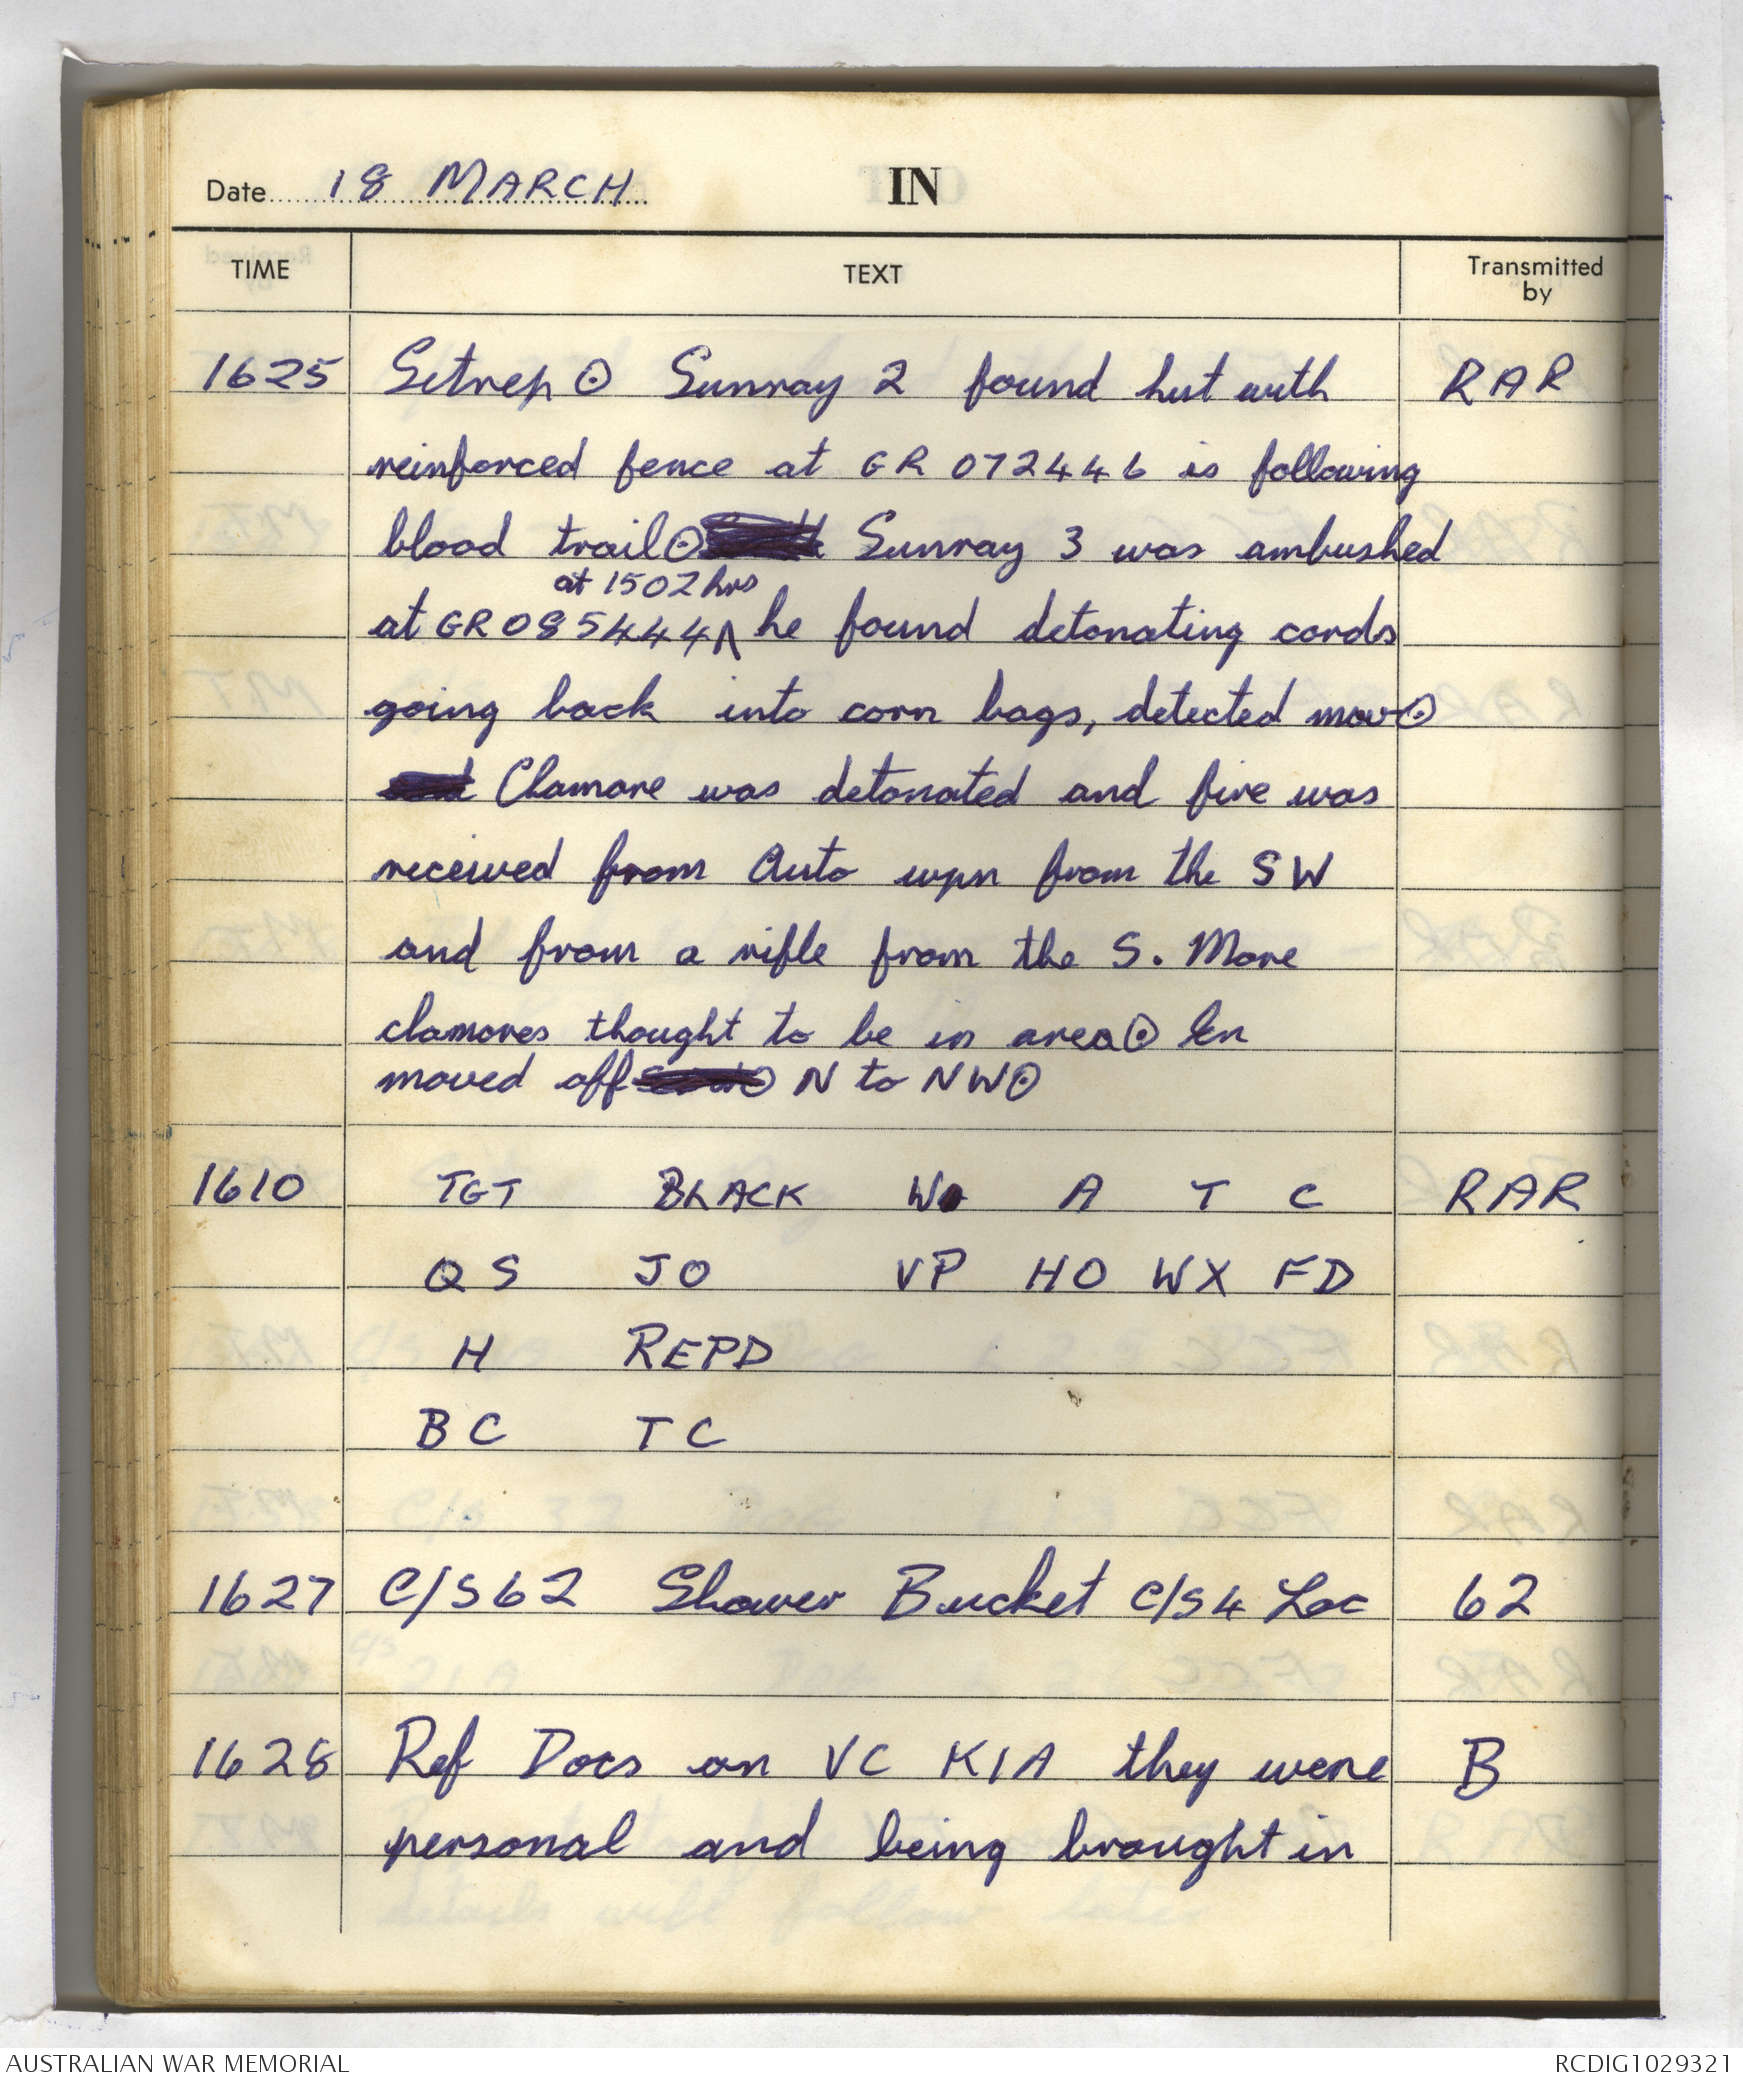 Date 18 MARCH
IN
TIME TEXT Transmitted by
1625 Sitrep ⊙ Sunray 2 found hut with RAR
reinforced fence at GR 072446 is following
blood trail ⊙ Sunray 3 was ambushed
at 1502 hrs
at GR 085444 ∧ he found detonating cords
going back into corn bags, detected mov ⊙
Clamore was detonated and fire was
received from Auto wpn from the SW
and from a rifle from the S. More
clamores thought to be in area ⊙ En
moved off N to NW ⊙
1610 TGT BLACK W A T C RAR
QS JO VP HO WX FD
H REPD
BC TC
1627 C/S 62 Shower Bucket C/S 4 Loc 62
1628 Ref Docs on VC KIA they were B
personal and being brought in
AUSTRALIAN WAR MEMORIAL RCDIG1029321